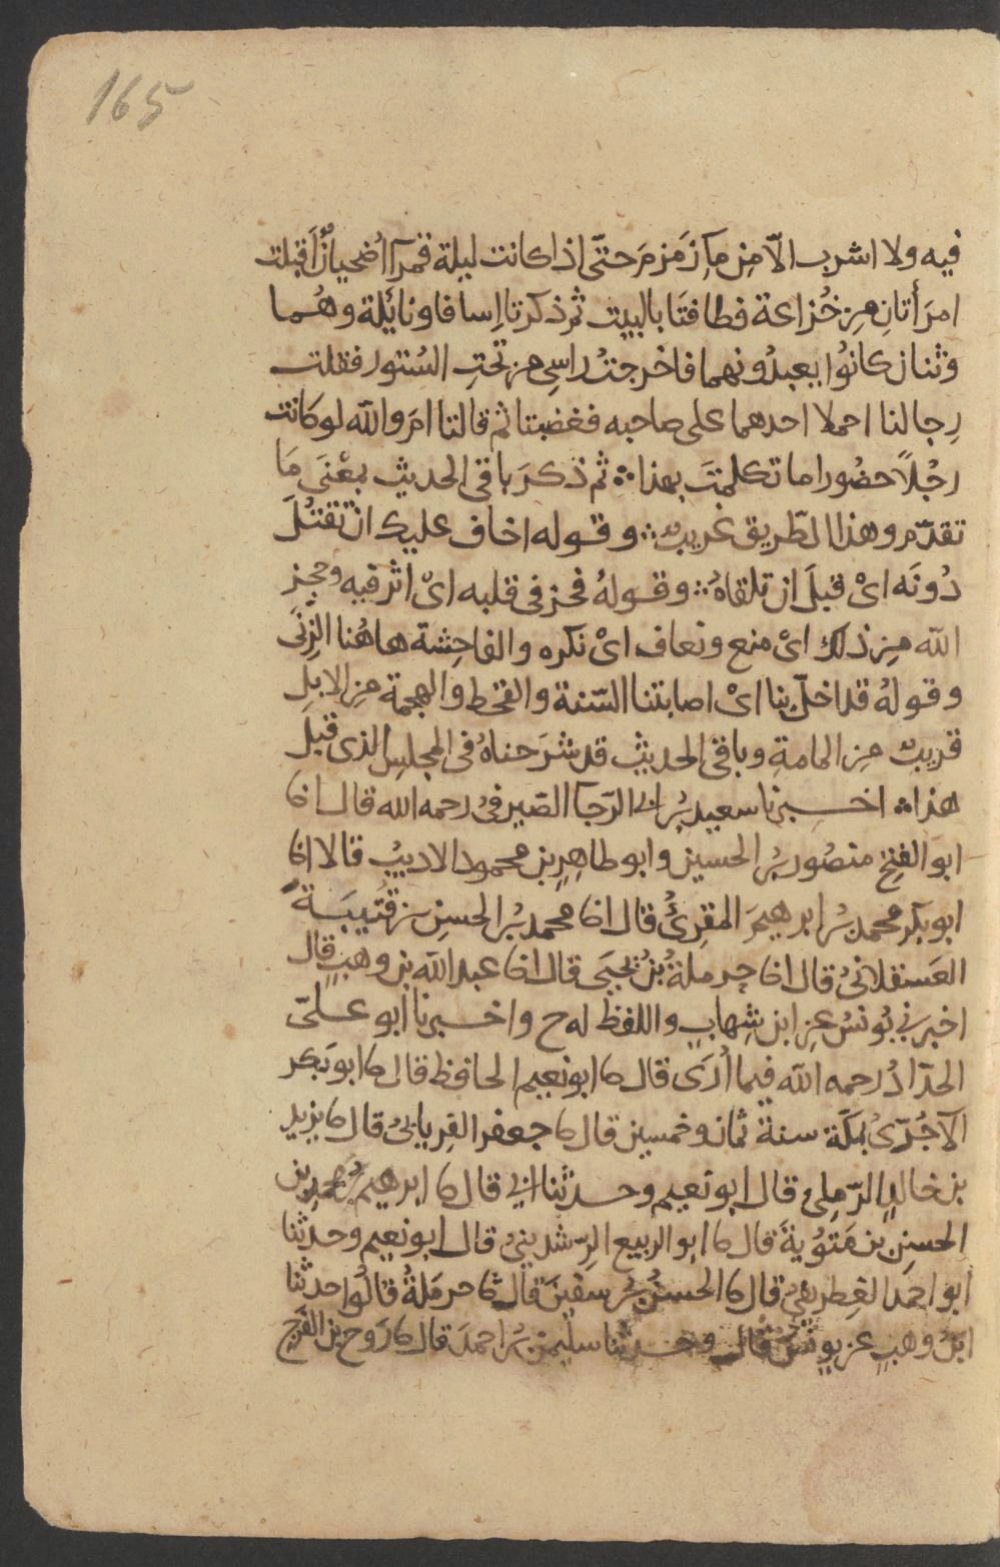 165
فيه ولا اشرب الّا مِن مآءِ زَمزمَ حتّى اذا كانت ليلة قمرآ اُضحيانٌ اَقبلت
امرَأتانِ مِن خُزاعة فطافتَا بالبيت ثم ذكرتا اِسافا ونائلة وهُما
وثنان كانوُا يعبدُونهما فاخرجتُ راسِى من تحتِ السُتور فقلت
رجالنا احملا احدهما على صاحبه فغضبتا ثم قالتا امَ والله لو كانت
رجُلاً حضُورا ما تكلمتَ بهذا ثم ذكرَ باقى الحديثِ بمعْنَى مَا
تقدّم وهذا الطّريق غريبٌ وقوله اخاف عليك ان تقتُلَ
دُونَه اىْ قبلَ ان تلقاهُ وقولهُ فحز فى قلبه اىْ اثر فيه وحجز
الله مِن ذلك اىْ منع ونعاف اىْ نكره والفاحِشة هاهُنا الزِنَى
وقولهُ قد اخلّ بنا اىْ اصابتنا السّنة والقحط والهجمة مِن الابلِ
قريبٌ مِن المامةِ وباقى الحديثِ قد شرَحناهُ فى المجلسِ الذى قبل
هذا اخبرنا سعيد بنُ ابى الرّجآ الصّيرفىُ رحمه الله قال انا
ابو الفتح منصُور بنُ الحسين وابو طاهِرِ بن محمود الاديبُ قالا انا
ابو بكر محمد بنُ ابرهيمَ المقرئُ قال انا محمد بنُ الحسنِ بن قُتيبَة
العَسقلانىُ قال انا حرملةُ بنُ يحيَى قال انا عبد الله بن وهبٍ قال
اخبرنى يُونسُ عنِ ابن شِهابٍ واللفظ له ح واخبرنا ابو علىّ
الحدّادُ رحمه الله فيما اُرَى قال نا ابو نعيم الحافظ قال نا ابو بكر
الآجُرّىُ بمكّة سنة ثمان وخمسين قال نا جعفر الفِريابىُ قال نا يزيد
بن خالدٍ الرّملِىُ قال ابو نعيم وحدثنا ابى قال نا ابرهيمُ بنُ محمدِ بن
الحسنِ بن مَتوُيةَ قال نا ابو الربيع الرِشدينىُ قال ابو نعيم وحدثنا
ابو احمَد الغِطريفىُ قال نا الحسنُ بنُ سفينَ قال ثنا حرمَلةُ قالُوا حدثنا
ابنُ وهبٍ عن يونسُ قال وحدثنا سليمن بنُ احمدَ قال نا رَوح بن الفَرجِ